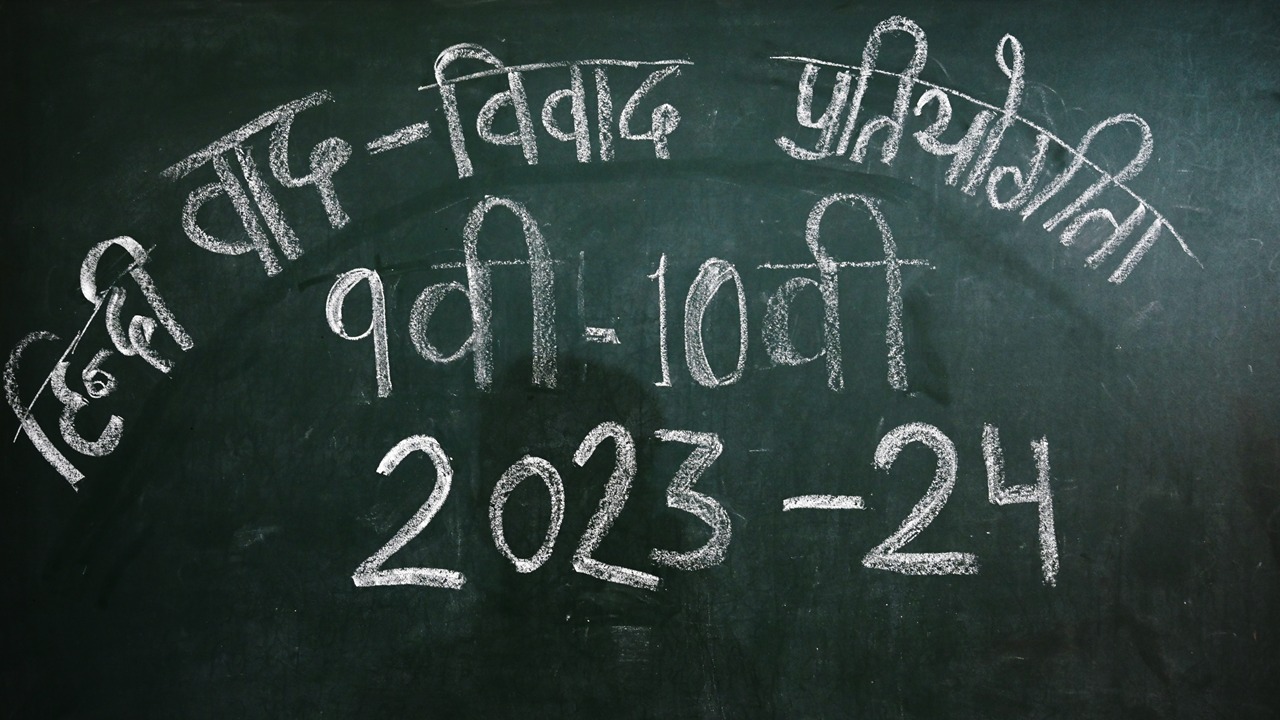 हिन्दी वाद-विवाद प्रतियोगिता
9वी - 10वी
2023 - 24